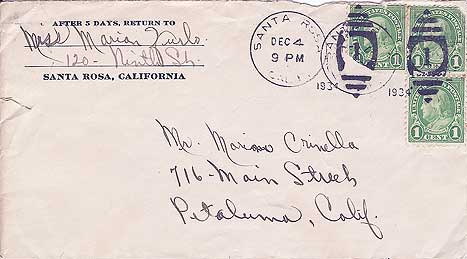 AFTER 5 DAYS, RETURN TO
Miss Marian Furlo
120 - Ninth St.
SANTA ROSA, CALIFORNIA
SANTA ROSA
DEC 4
9 PM
CALIF.
1934
1934
1 CENT 1
1
1 CENT 1
Mr. Mariano Crinella
716 - Main Street
Petaluma, Calif.